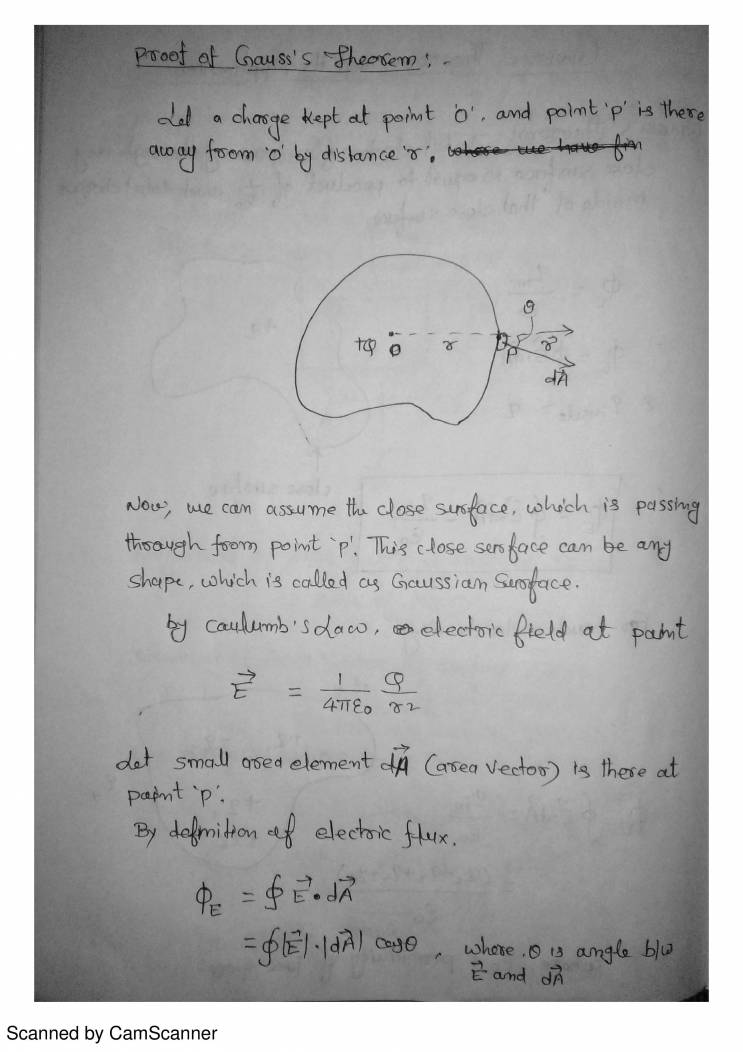 Proof of Gauss's Theorem: -
Let a charge kept at point 'O', and point 'p' is there
away from 'O' by distance 'r'. where we have fin
θ
+Q O r P r⃗
dA⃗
Now, we can assume the close surface, which is passing
through from point 'p'. This close serface can be any
shape, which is called as Gaussian Surface.
by Caulumb's Law, electric field at paint
E⃗ = 1/4πε₀ Q/r2
Let small area element dA⃗ (area vector) is there at
paint 'p'.
By defmition of electric flux.
ϕ_E = ∮ E⃗ • dA⃗
= ∮|E⃗|·|dA⃗| cosθ, where, θ is angle b/w
E⃗ and dA⃗
Scanned by CamScanner